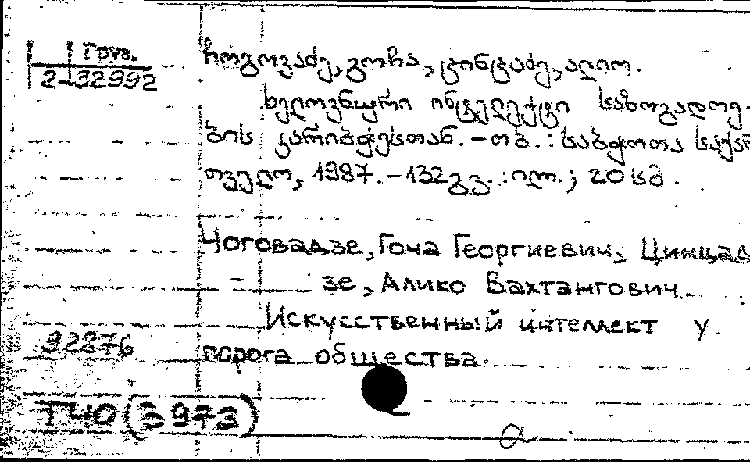 Груз.
2-32992
ჩოგოვაძე, გოჩა, ცინცაძე, ალიკო.
ხელოვნური ინტელექტი საზოგადოე-
ბის კარიბჭესთან. - თბ. : საბჭოთა საქარ
თველო, 1987. - 132 გვ. : ილ. ; 20 სმ.
Чоговадзе, Гоча Георгиевич, Цинцад
зе, Алико Вахтангович
Искусственный интеллект у
92876
порога общества.
Т40(3973)